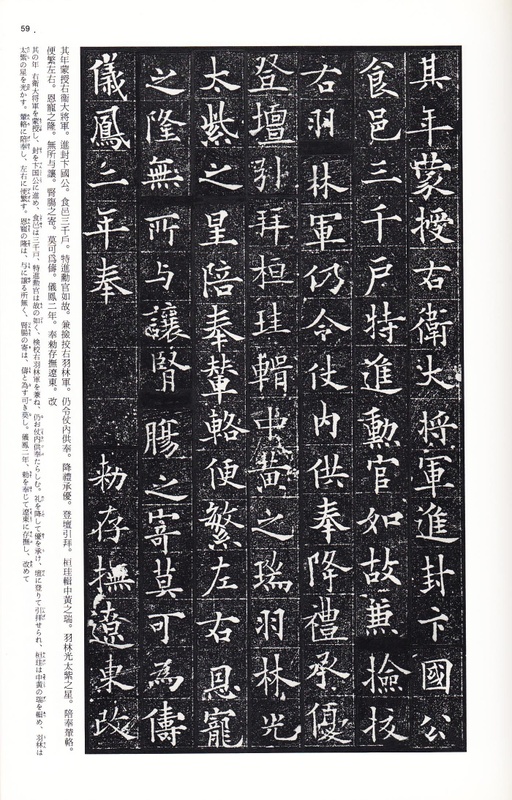 59
其年蒙授右衛大将軍進封卞國公
食邑三千戶特進勲官如故兼撿挍
右羽林軍仍令仗内供奉降禮承優
登壇引拜桓珪輯中黄之瑞羽林光
太紫之星陪奉輦輅便繁左右恩寵
之隆無所与讓腎膓之寄莫可為儔
儀鳳二年奉勑存撫遼東改
其年蒙授右衛大将軍。進封卞國公。食邑三千戶。特進勲官如故。兼撿挍右羽林軍。仍令仗内供奉。降禮承優。登壇引拜。桓珪輯中黄之瑞。羽林光太紫之星。陪奉輦輅。
便繁左右。恩寵之隆。無所与讓。腎膓之寄。莫可爲儔。儀鳳二年。奉勅存撫遼東。改
其の年 右衛大将軍を蒙授し、封を卞国公に進め、食邑は三千戸、特進勲官は故の如く、検校右羽林軍を兼ね、仍お仗内供奉たらしむ。礼を降して優を承け、壇に登りて引拝せられ、桓珪は中黄の瑞を輯め、羽林は
太紫の星を光かす。輦輅に陪奉し、左右に便繁す。恩寵の隆は、与に譲る所無く、腎腸の寄は、儔と為す可き莫し。儀鳳二年、勅を奉じて遼東に存撫し、改めて